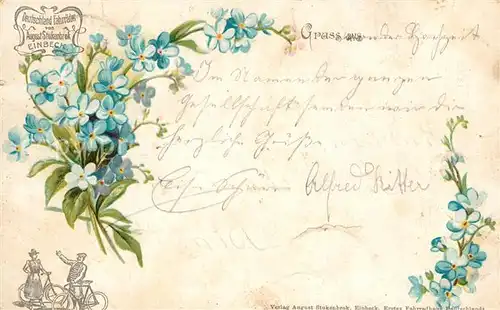 Deutschland Fahrräder
von
August Stukenbrok
EINBECK
Gruss aus der Hochzeit
Im Namen der ganzen
Gesellschaft senden wir die
herzliche Grüße
Alfred Ritter
Verlag August Stukenbrok, Einbeck, Erstes Fahrradhaus Deutschlands